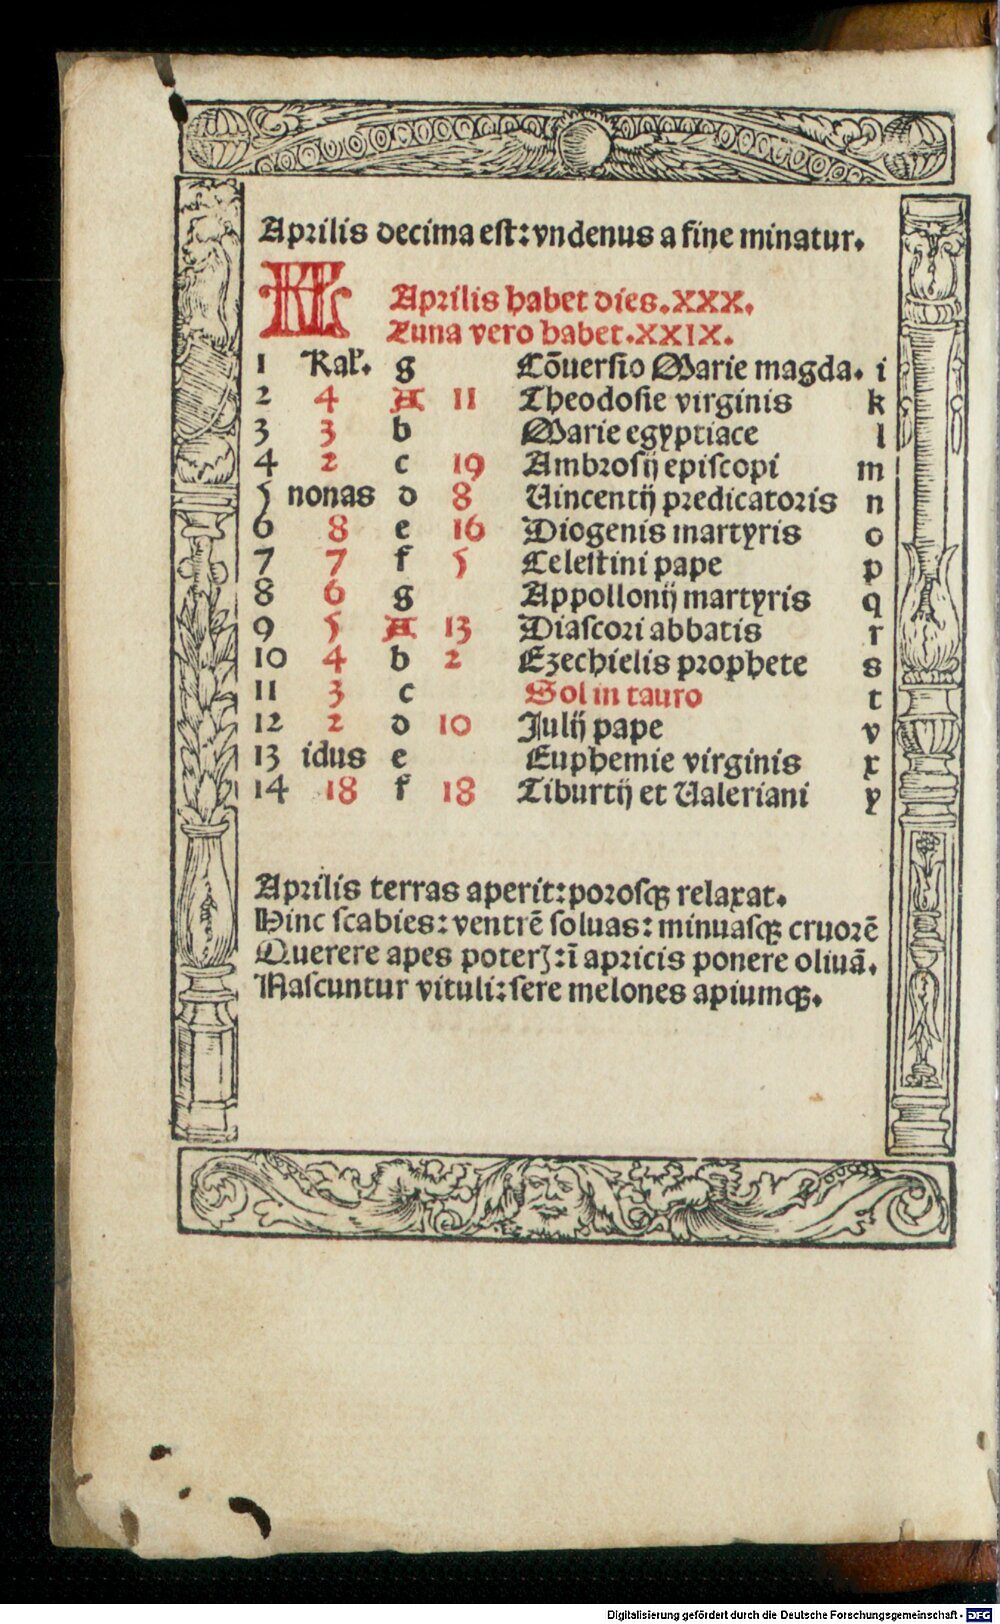 Aprilis decima est: vndenus a fine minatur.
KL Aprilis habet dies. XXX.
Luna vero habet. XXIX.
1 Kal'. g Cōuersio Marie magda. i
2 4 A 11 Theodosie virginis k
3 3 b Marie egyptiace l
4 2 c 19 Ambrosij episcopi m
5 nonas d 8 Uincentij predicatoris n
6 8 e 16 Diogenis martyris o
7 7 f 5 Celestini pape p
8 6 g Appollonij martyris q
9 5 A 13 Diascori abbatis r
10 4 b 2 Ezechielis prophete s
11 3 c Sol in tauro t
12 2 d 10 Julij pape v
13 idus e Euphemie virginis x
14 18 f 18 Tiburtij et Ualeriani y
Aprilis terras aperit: porosqꝫ relaxat.
Hinc scabies: ventrē soluas: minuasqꝫ cruorē
Querere apes poterꝭ: ī apricis ponere oliuā.
Nascuntur vituli: sere melones apiumqꝫ.
Digitalisierung gefördert durch die Deutsche Forschungsgemeinschaft - DFG